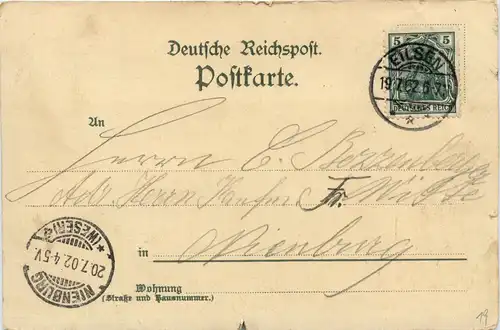 Deutsche Reichspost.
Postkarte.
5 5
DEUTSCHES REICH
EILSEN
19.7.02.6-7.
An
Herrn C.
Herrn Fr. Witte
in Nienburg
NIENBURG
*(WESER)*
20.7.02.4-5V.
Wohnung
(Straße und Hausnummer.)